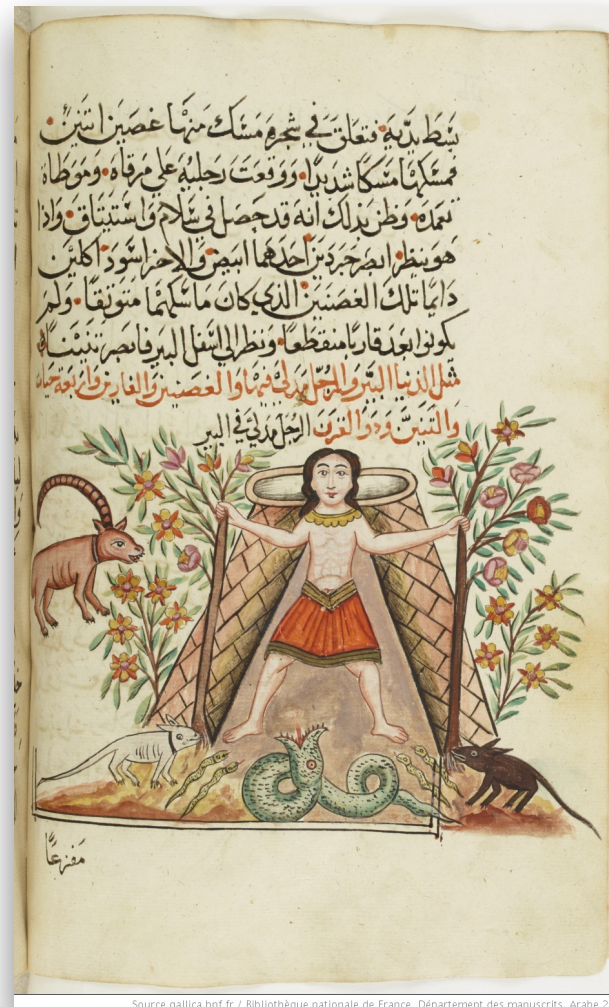 بسط يديه فتعلق في شجره مسك منها غصنين اثنين
فمسكها مسكا شديدا ووقعت رجليه علي مرقاه وموطاة
تعمده وظن بذلك انه قد حصل في سلام واستيتاق واذا
هو ينظر ابصر جردين احدهما ابيض والاخر اسود اكلين
دايما تلك الغصنين الذي كان ماسكهما متوتقا ولم
يكونوا بعد قاربا منقطعا ونظر الي اسفل البير فابصر تنينا
مثل الدنيا البير والرجل مدلي فيها والغصنين والفارين واربعة حيات
والتنين وذو القرن الرجل مدلي في البير
مفزعا
Source gallica.bnf.fr / Bibliothèque nationale de France. Département des manuscrits. Arabe 2